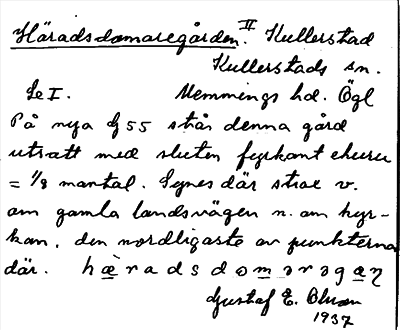 Häradsdomaregården. II Kullerstad
Kullerstads sn.
Se I. Memmings hd. Ögl
På nya G 55 står denna gård
utsatt med sluten fyrkant ehuru
= 1/8 mantal. Synes där strax v.
om gamla landsvägen n. om kyr-
kan, den nordligaste av punkterna
där. hæradsdomərəgaŋ
Gustaf E. Blman
1937